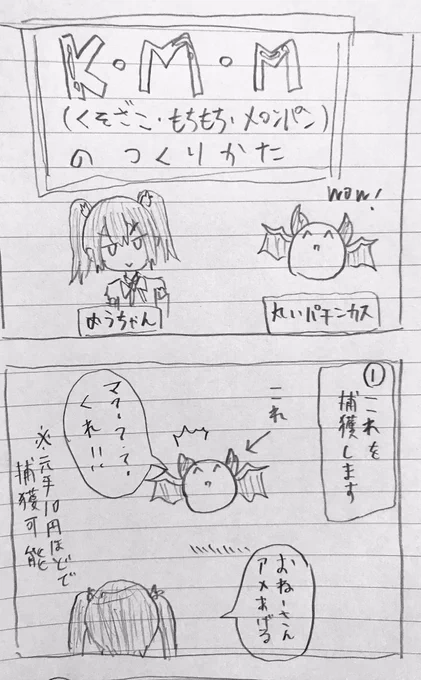 K・M・M
(くそざこ・もちもち・メロンパン)
のつくりかた
WOW!
めうちゃん
丸いパチンカス
①
これを
捕獲します
これ
くれ!!
※元手10円ほどで
捕獲可能
おねーさん
アメあげる